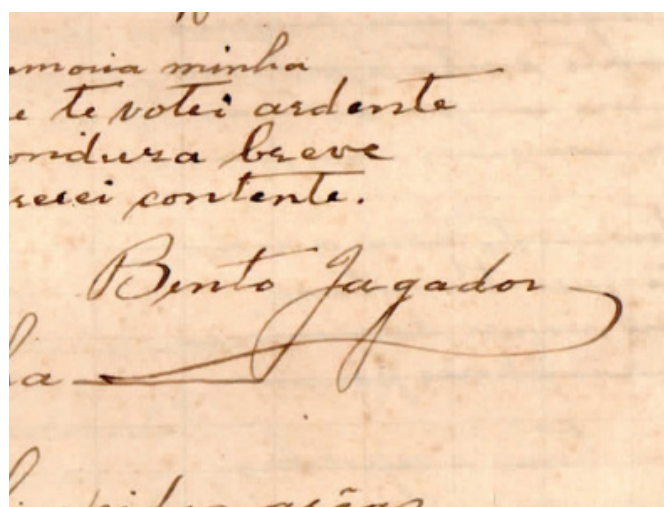 emoria minha
e te votei ardente
ondura breve
rerei contente.
Bento Jagador
ha